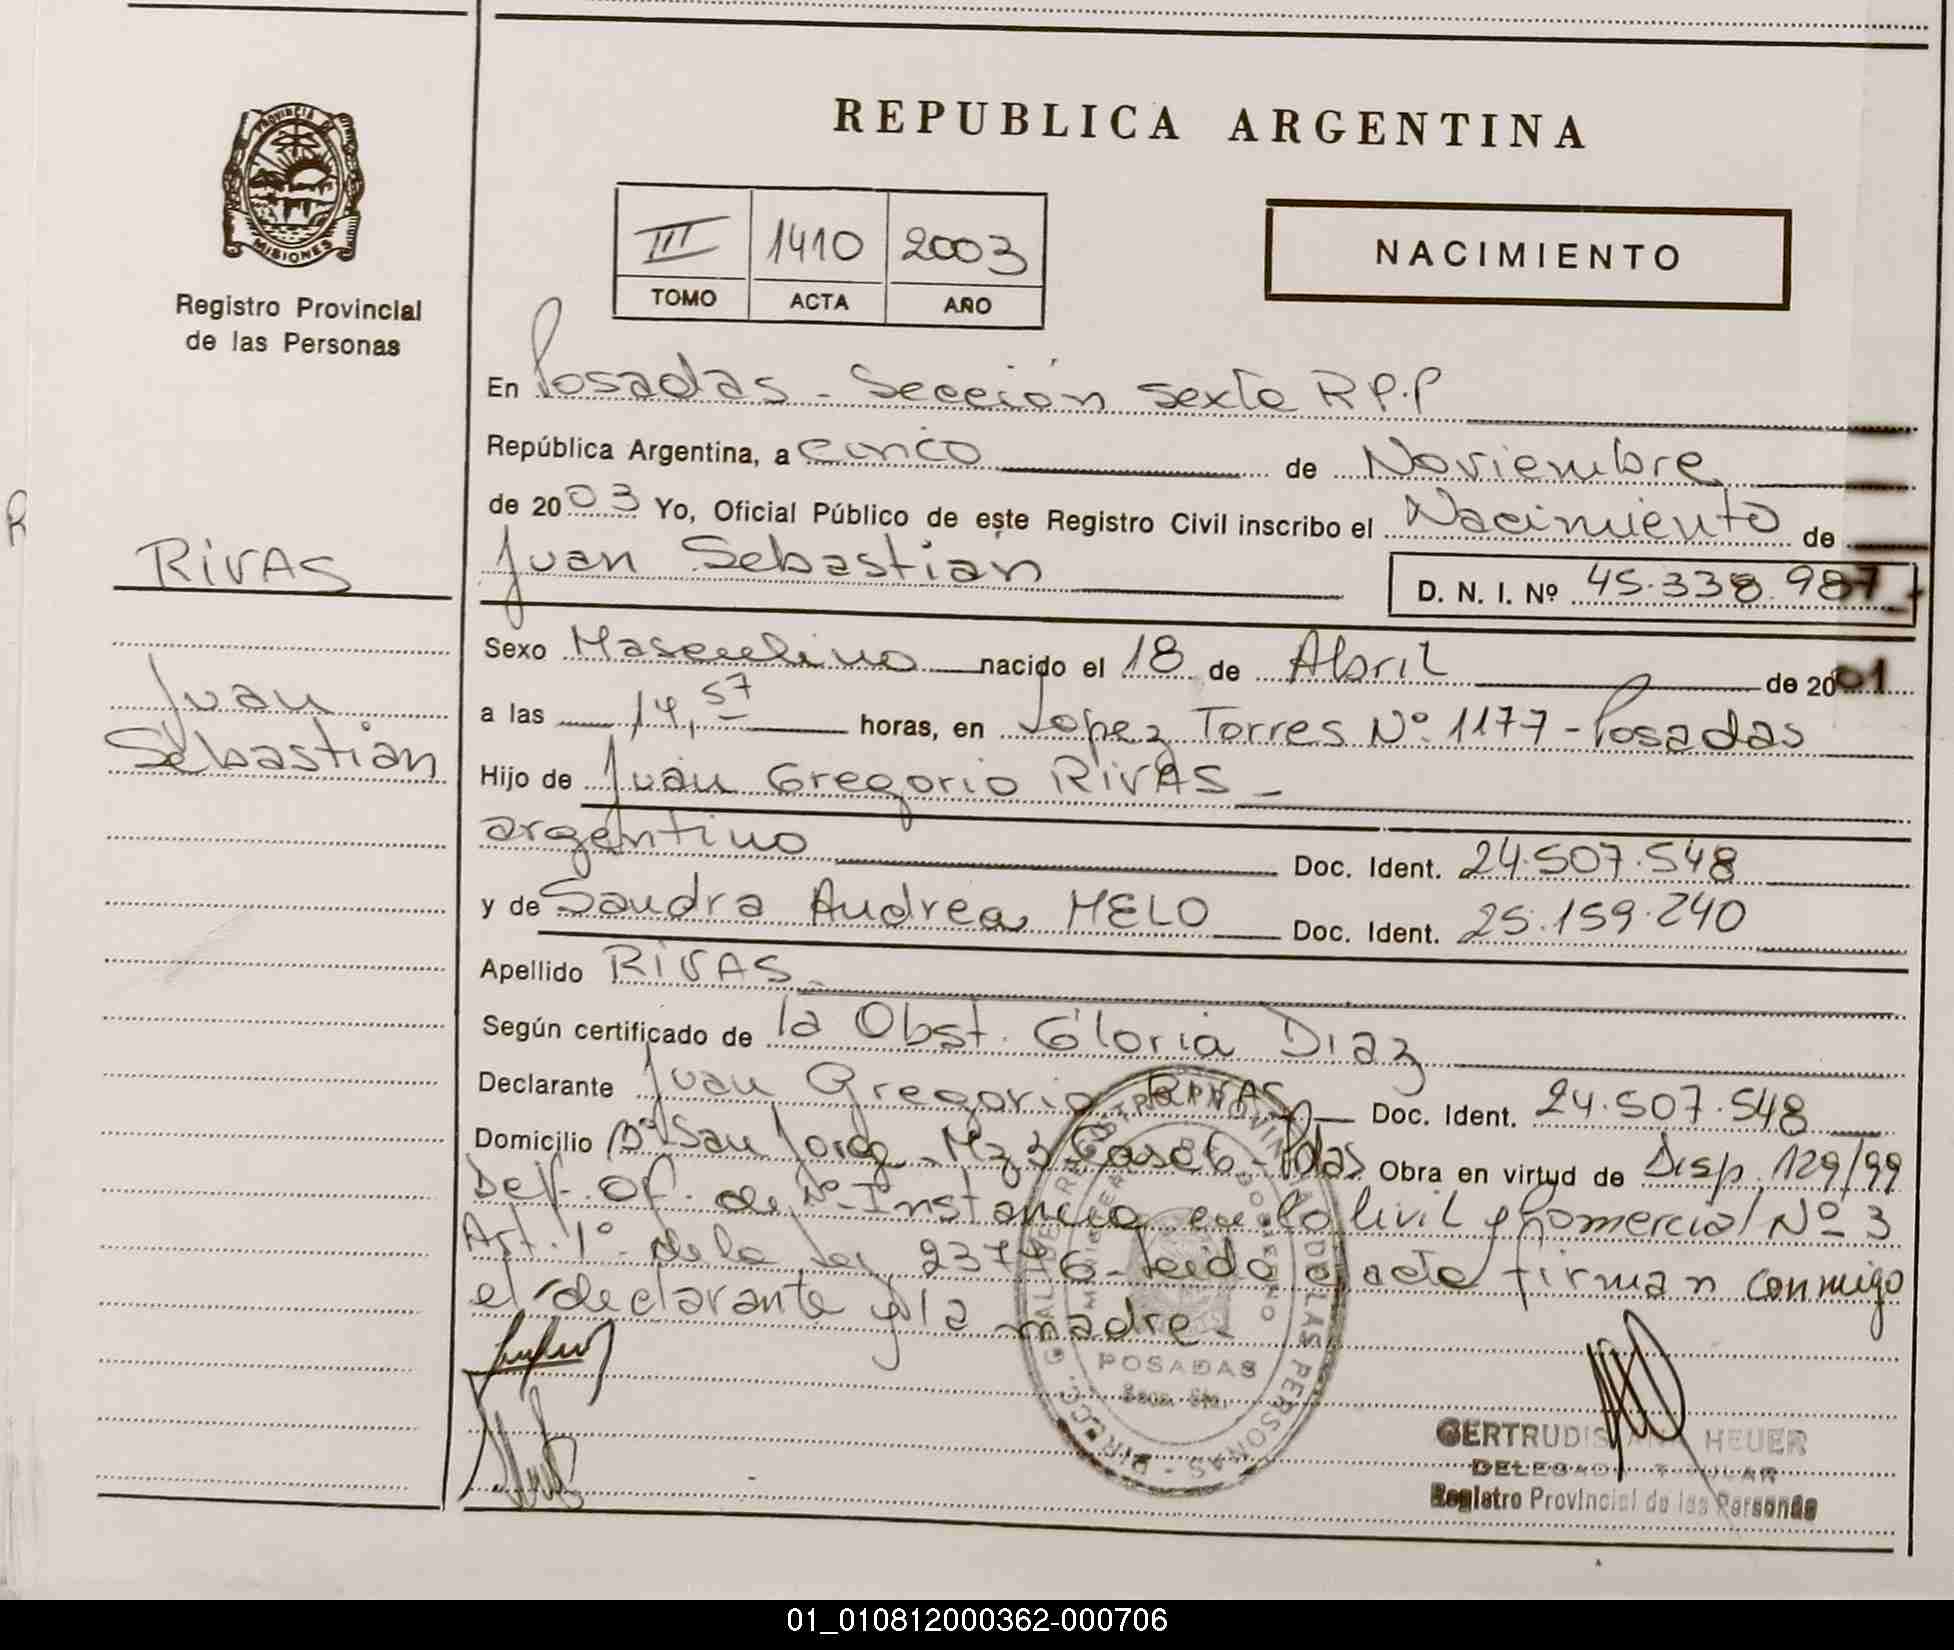 REPUBLICA ARGENTINA
PROVINCIA DE
MISIONES
Registro Provincial
de las Personas
III 1410 2003
TOMO ACTA AÑO
NACIMIENTO
En Posadas - Sección Sexta R.P.P
República Argentina, a cinco de Noviembre
de 2003 Yo, Oficial Público de este Registro Civil inscribo el Nacimiento de
Juan Sebastian D. N. I. Nº 45.338.987
R
RIVAS
Juan
Sebastian
Sexo Masculino nacido el 18 de Abril de 2001
a las 14,57 horas, en Lopez Torres Nº 1177 - Posadas
Hijo de Juan Gregorio RIVAS -
argentino Doc. Ident. 24.507.548
y de Sandra Andrea MELO Doc. Ident. 25.159.240
Apellido RIVAS
Según certificado de la Obst. Gloria Diaz
Declarante Juan Gregorio RIVAS Doc. Ident. 24.507.548
Domicilio Bº San Jorge - Mz 3 Casa 6 - Pdas Obra en virtud de Disp. 129/99
Def. Of. de Instancia en lo Civil y Comercial Nº 3
Art. 1º de la ley 23776 - leida el acta firman conmigo
el declarante y la madre -
POSADAS
Secc. 6ta.
GERTRUDIS HEUER
DELEGADA TITULAR
Registro Provincial de las Personas
01_010812000362-000706